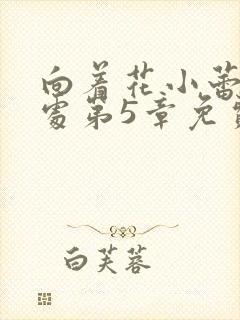 向着花小蕾
处第5章免费
白芙蓉